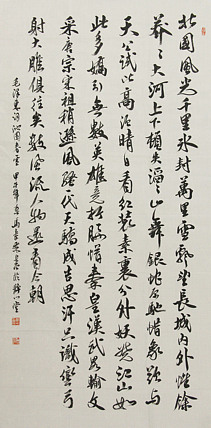 北国风光千里冰封万里雪飘望长城内外惟余
莽々大河上下顿失滔々山舞银蛇原驰蜡象欲与
天公试比高须晴日看红装素裹分外妖娆江山如
此多娇引无数英雄竞折腰惜秦皇汉武略输文
采唐宗宋祖稍逊风骚一代天骄成吉思汗只识弯弓
射大雕俱往矣数风流人物还看今朝
毛泽东词沁园春雪